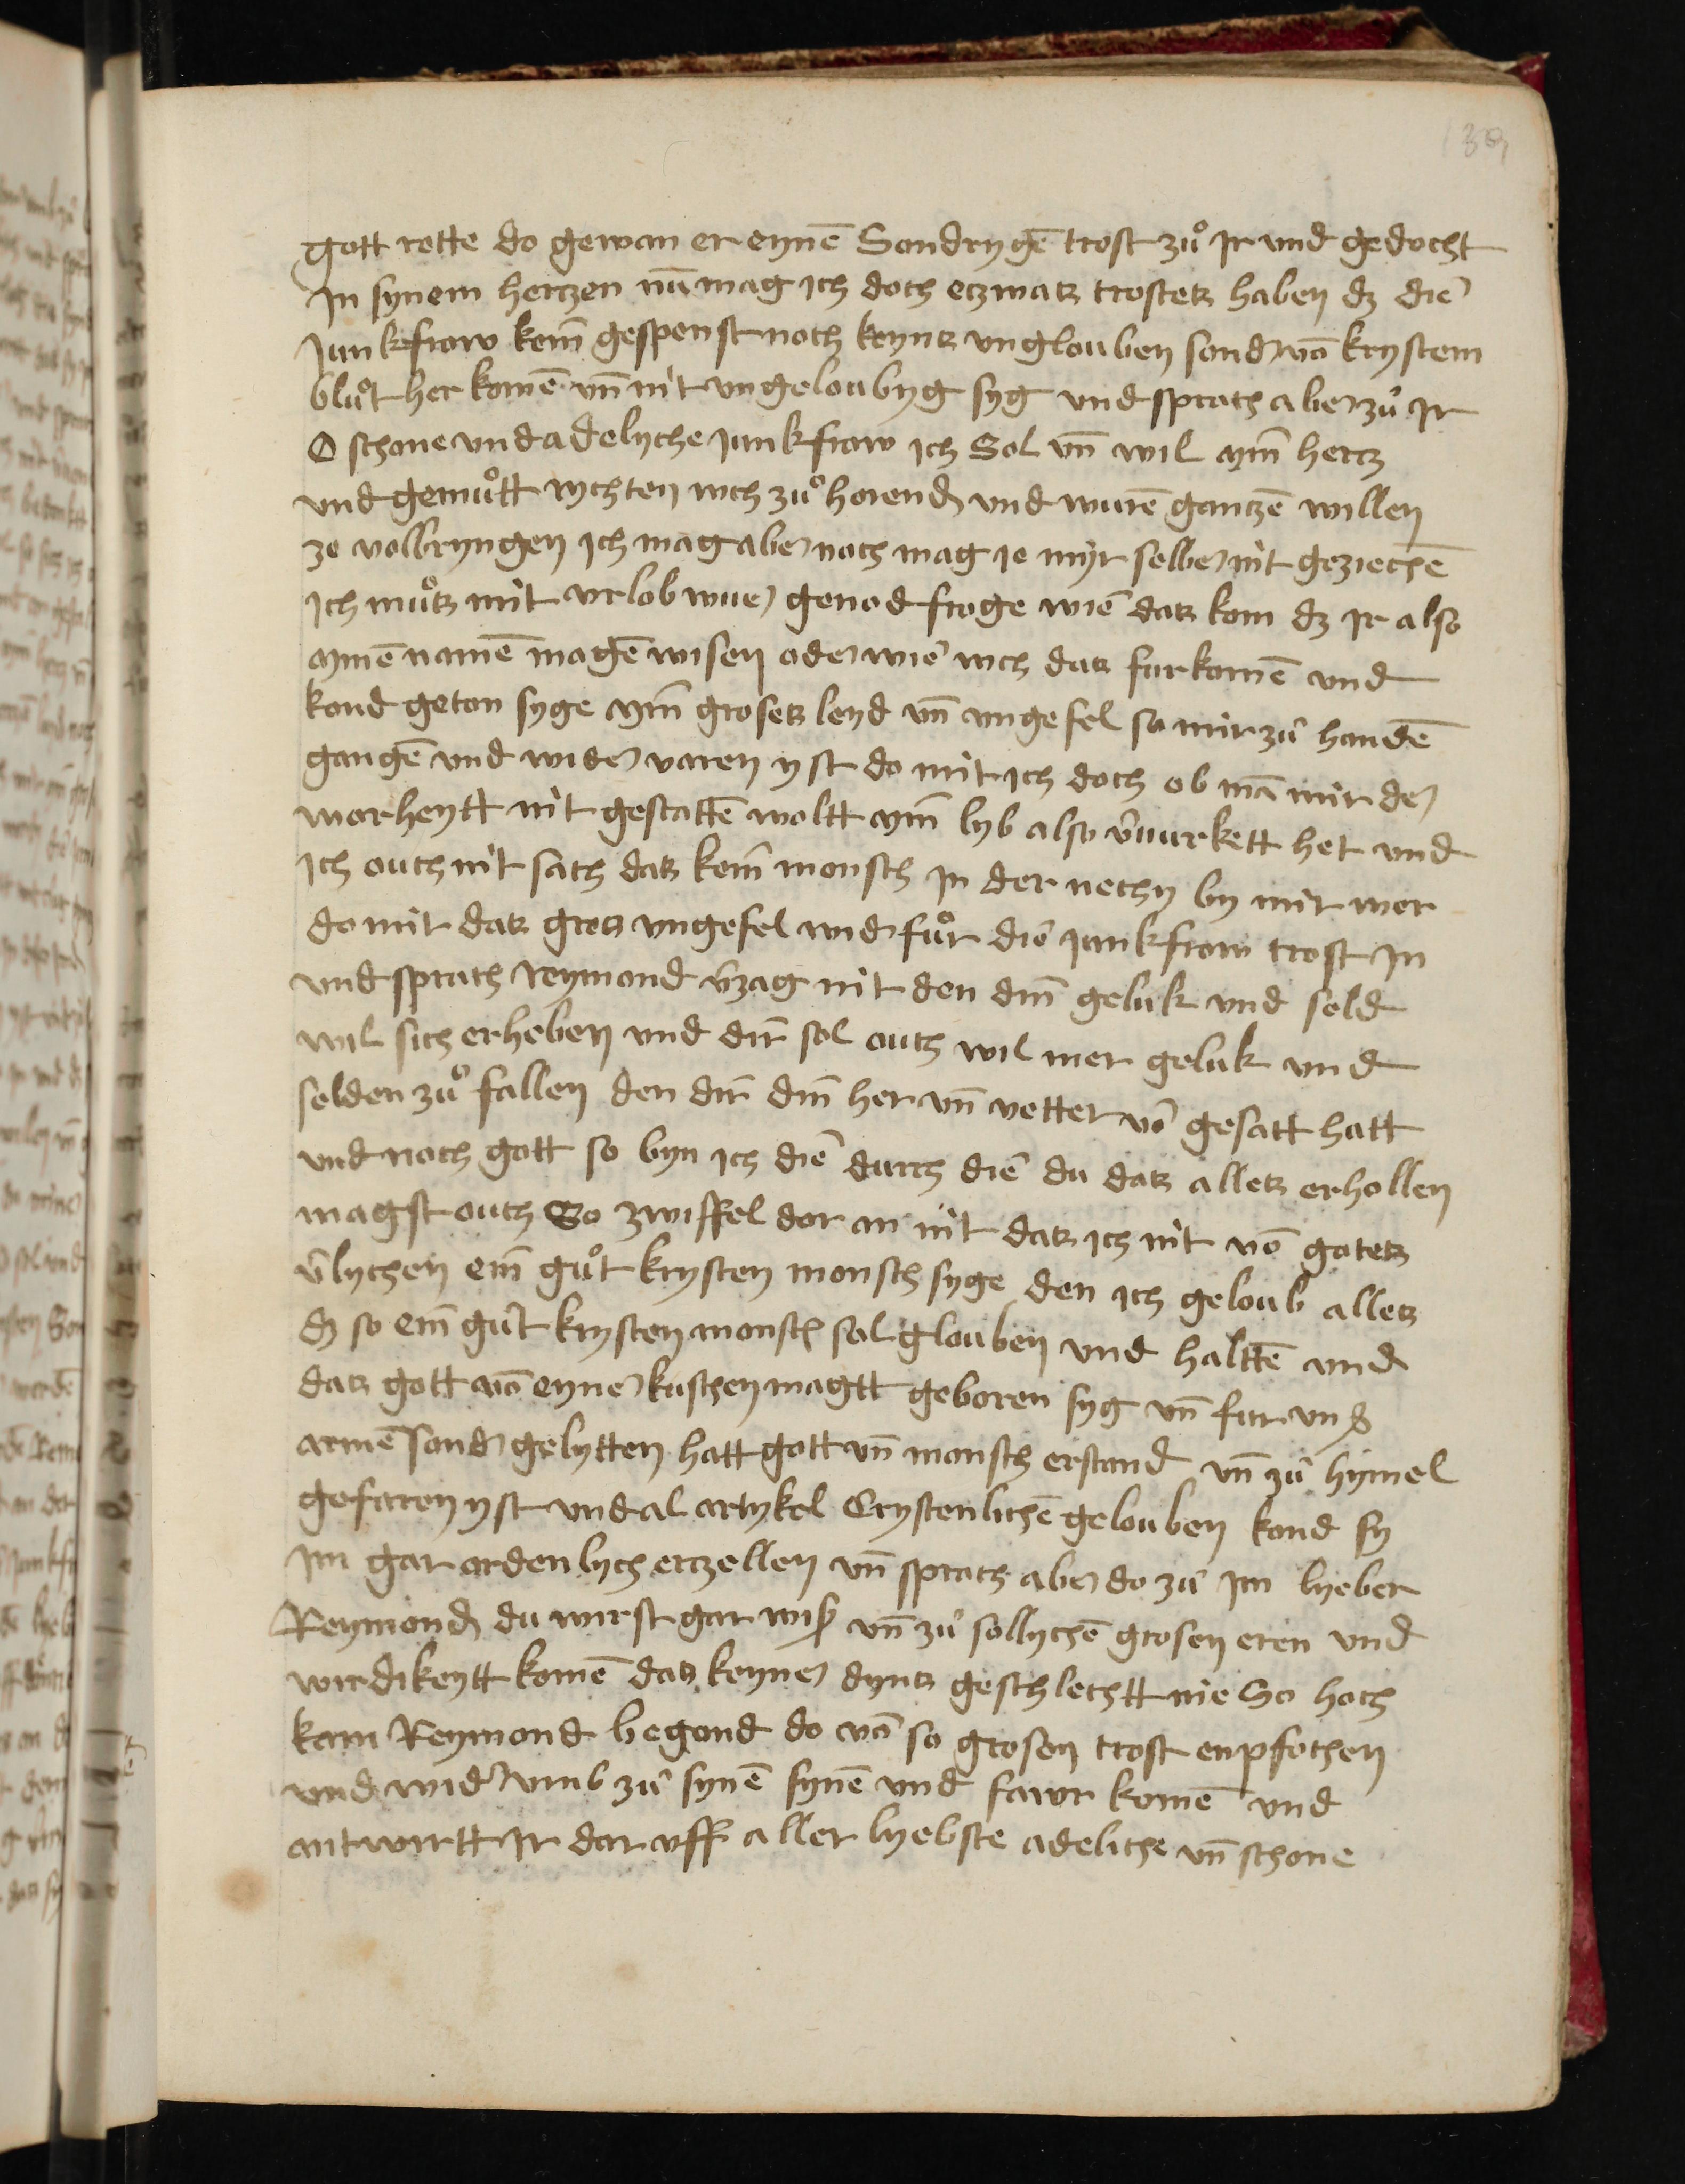 139
gott rette do gewan er eynē Sondrygē trost zuͦ Ir vnd gedocht
In synem hertzen nū mag ich doch etzwas trostes haben dz die
Junkfrow kein̄ gespenst noch keyns vnglouben sond' vō krystem
bluͦt her komē vn̄ nit vngeloubyg syg vnd sprach aber zuͦ Ir
O schone vnd adelyche Junkfrow ich Sol vn̄ wil mȳn hertz
vnd gemuͦtt rychten vch zuͦ horend vnd vwrē gantzē willen
ze volbryngen Ich mag aber noch mag ie myr selber nit geziechē
Ich muͦs mit vrlob vwer genod froge wie das kom dz Ir also
mynē namē magē wisen oder wie vch das furkomē vnd
kond geton syge mȳn groses leyd vn̄ vngefel so mir zuͦ handē
gangē vnd wider varen yst do mit ich doch ob mā mir der
worheytt nit gestattē woltt mȳn lyb also v̄wurkett het vnd
Ich ouch nit sach das kein̄ monsch In der nechy by mir wer
do mit das gros vngefel wid' fuͦr die Junkfrow trost In
vnd sprach reymond v̄zag nit den din̄ geluk vnd seld
wil sich erheben vnd dir sol ouch wil mer geluk vnd
selden zuͦ fallen den dir din̄ her vn̄ vetter vō gesatt hatt
vnd noch gott so byn ich die durch die du das alles erhollen
magst ouch So zwiffel dor an nit das ich nit vō gotes
v̄lychen ein̄ guͦt krysten monsch syge den ich geloub alles
dz so ein̄ guͦt krysten monsch sol glouben vnd haltē vnd
das gott vō eyner kuschen magtt geboren syg vn̄ fur vnß
armē sond' gelytten hatt gott vn̄ monsch erstand vn̄ zuͦ hymel
gefaren yst vnd al artykel Crystenlichē gelouben kond sy
Im gar ordenlych erczellen vn̄ sprach aber do zuͦ Im lyeber
Reymond du wirst gar wiß vn̄ zuͦ sollychē grosen eren vnd
wirdikeytt komē das keyner dyns geschlechtt nie So hoch
kam Reymond begond do vō so grosen trost enpfochen
vnd wid' vmb zuͦ synē synē vnd farw komē vnd
antwirtt Ir dar vff aller lyebste adeliche vn̄ schone